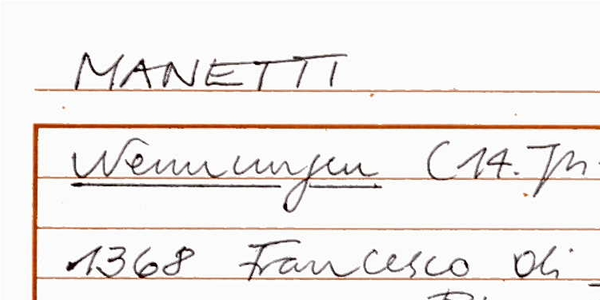 MANETTI
Nennungen (14. Jh.
1368 Francesco di